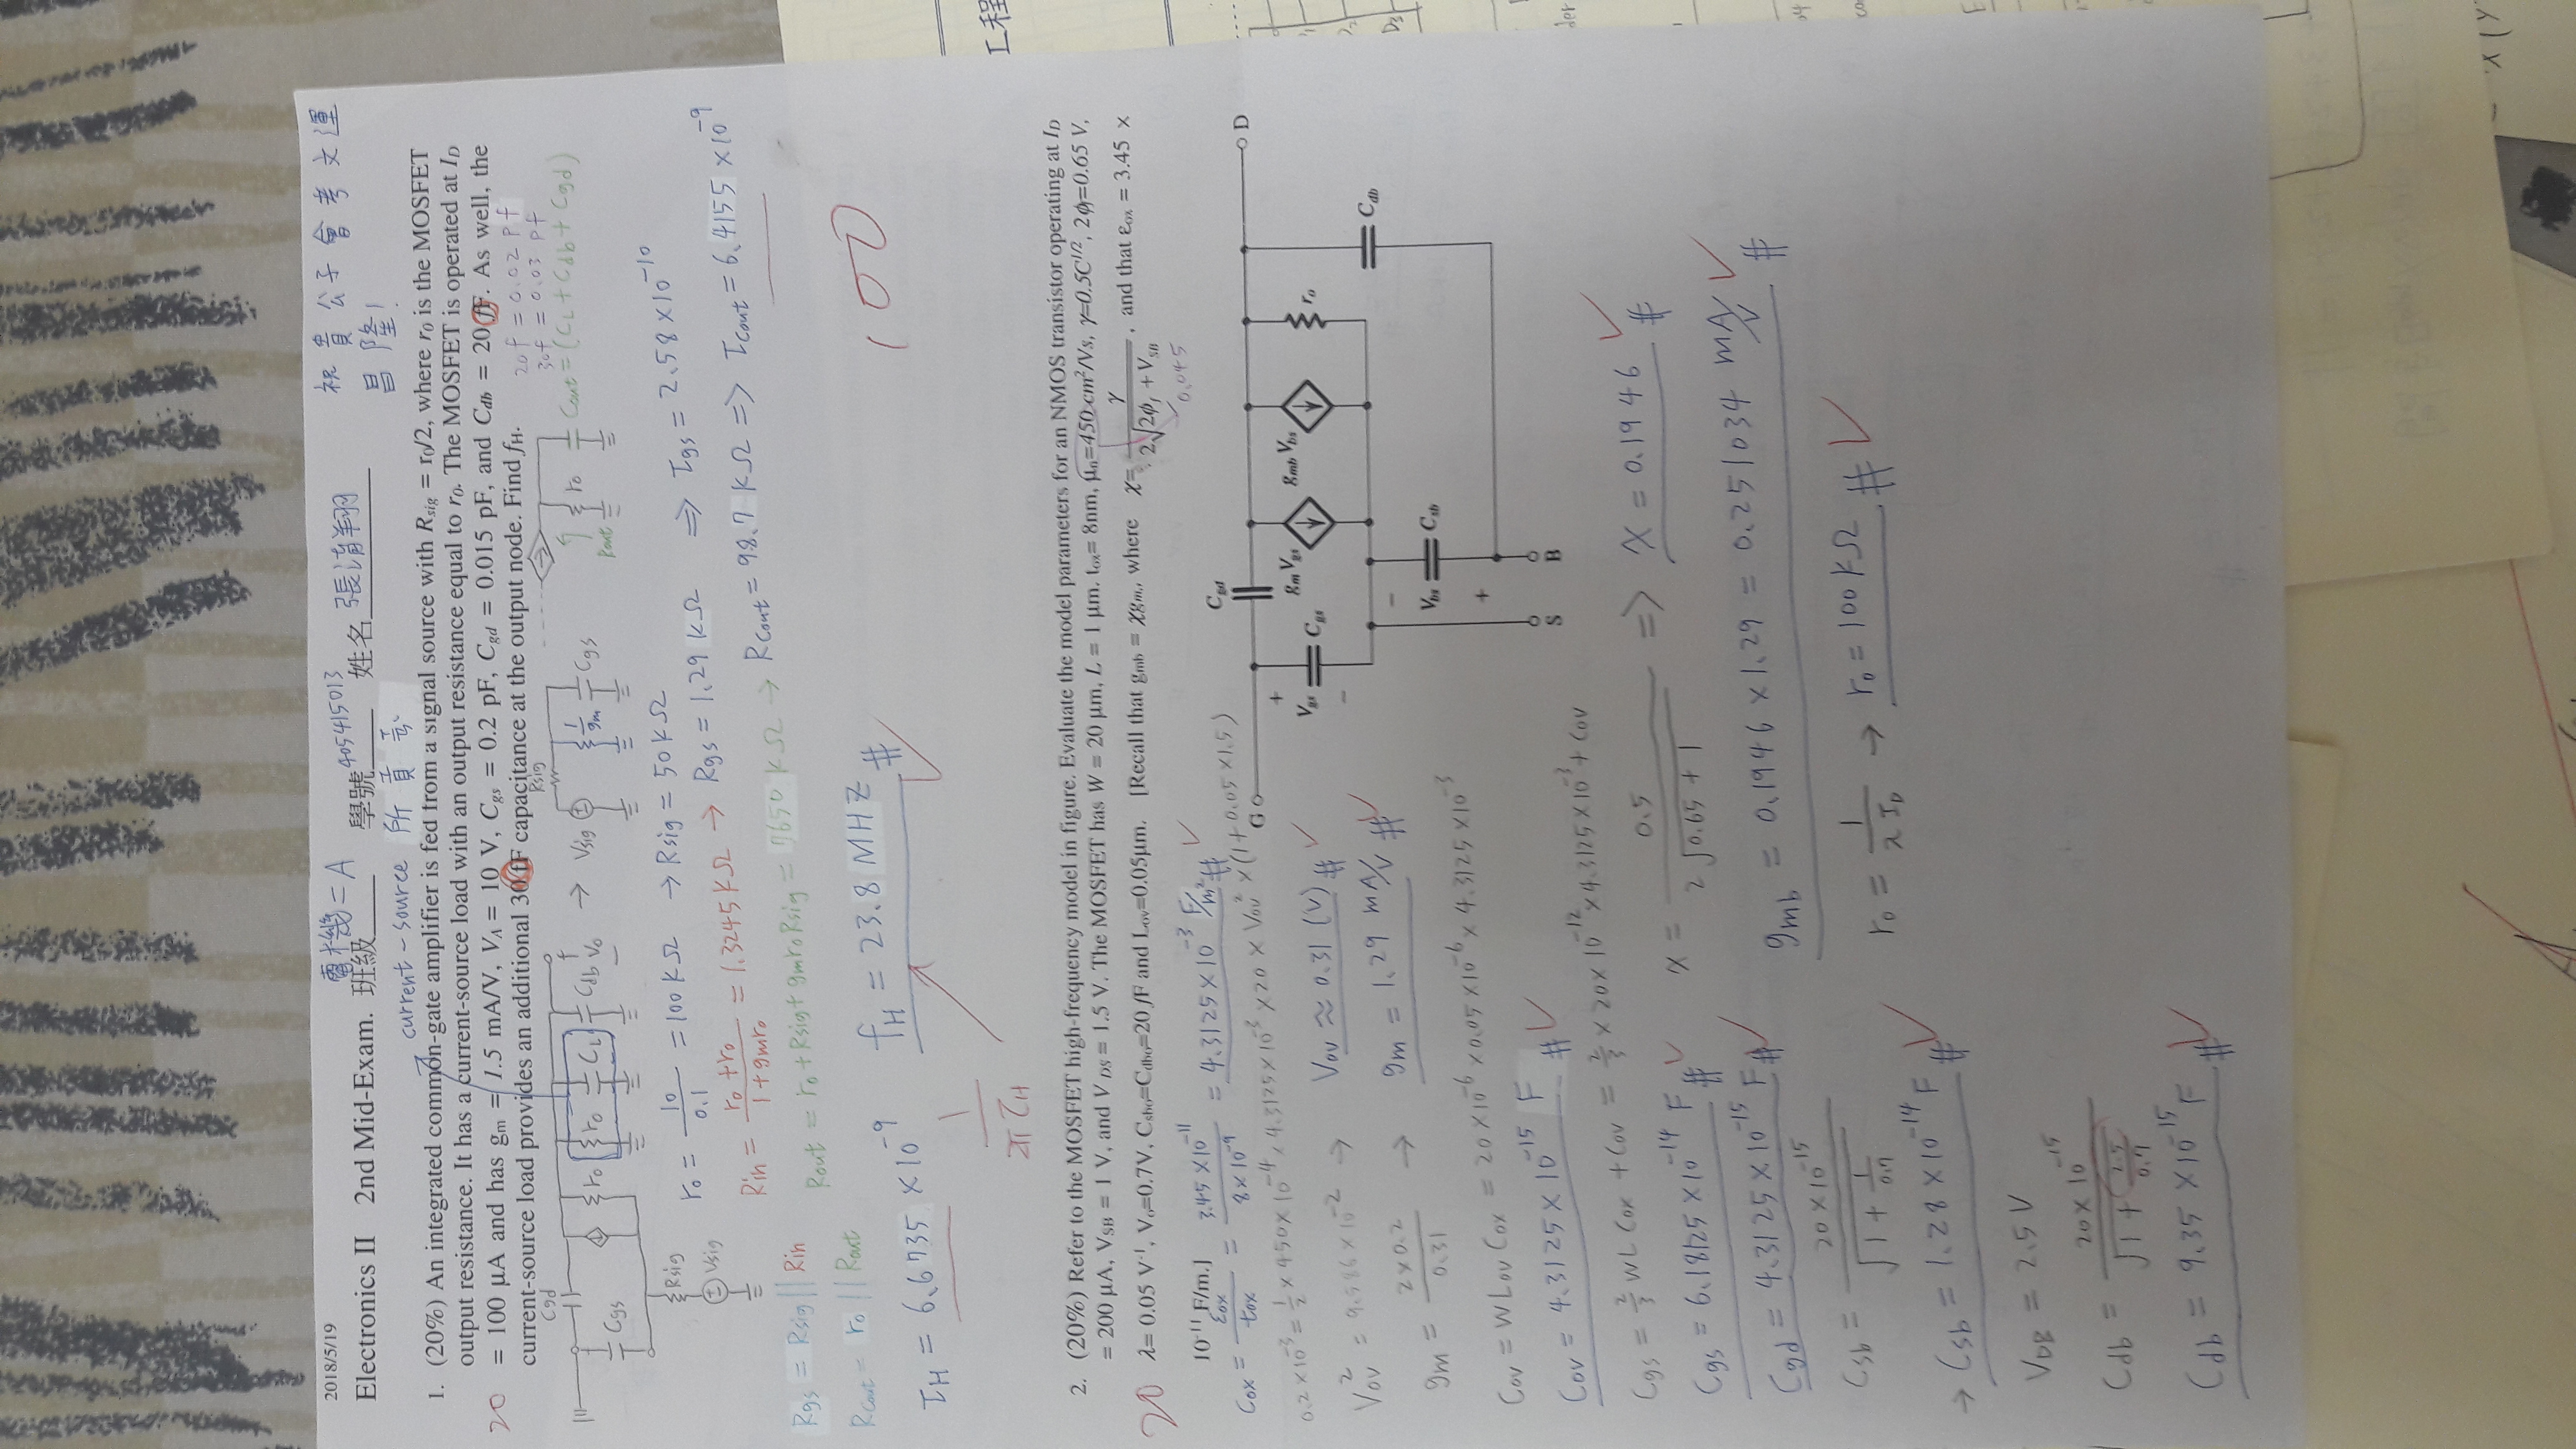 2018/5/19
電機二A 405415013 張清翔
祝貴公子會考文運
昌隆!
Electronics II 2nd Mid-Exam. 班級 學號 姓名
current-source 所貢
1. (20%) An integrated common-gate amplifier is fed from a signal source with Rsig = r0/2, where r0 is the MOSFET
output resistance. It has a current-source load with an output resistance equal to r0. The MOSFET is operated at ID
20
= 100 μA and has gm = 1.5 mA/V, VA = 10 V, Cgs = 0.2 pF, Cgd = 0.015 pF, and Cdb = 20 fF. As well, the
current-source load provides an additional 30 fF capacitance at the output node. Find fH.
20f = 0.02 pf
30f = 0.03 pf
Cgd
Cgs
ro
ro
CL
Cdb
Vo
→
Rsig
Vsig
1/gm
Cgs
Rout
ro
Cout = (CL + Cdb + Cgd)
Rsig
Vsig
ro = 10/0.1 = 100 kΩ → Rsig = 50 kΩ
Rin = (ro + ro)/(1 + gmro) = 1.3245 kΩ → Rgs = 1.29 kΩ ⇒ τgs = 2.58 × 10^-10
Rgs = Rsig || Rin
Rout = ro + Rsig + gmroRsig = 7650 kΩ → RCout = 98.7 kΩ ⇒ τCout = 6.4155 × 10^-9
RCout = ro || Rout
τH = 6.6735 × 10^-9
fH = 23.8 MHZ #
100
1/2πτH
工程
2. (20%) Refer to the MOSFET high-frequency model in figure. Evaluate the model parameters for an NMOS transistor operating at ID
= 200 μA, VSB = 1 V, and V DS = 1.5 V. The MOSFET has W = 20 μm, L = 1 μm. tox= 8nm, μn=450 cm²/Vs, γ=0.5C^1/2, 2ϕf=0.65 V,
20
λ= 0.05 V^-1, Vo=0.7V, Csbo=Cdbo=20 fF and Lov=0.05μm. [Recall that gmb = χgm,, where χ= γ/(2√(2ϕf + VSB)), and that εox = 3.45 ×
0.045
10^-11 F/m.]
Cox = εox/tox = 3.45 × 10^-11 / 8 × 10^-9 = 4.3125 × 10^-3 F/m² #
0.2 × 10^-3 = 1/2 × 450 × 10^-4 × 4.3125 × 10^-3 × 20 × Vov² × (1 + 0.05 × 1.5)
Vov² = 9.586 × 10^-2 → Vov ≈ 0.31 (V) #
gm = 2 × 0.2 / 0.31 → gm = 1.29 mA/V #
G
Cgd
D
+
Vgs
−
Cgs
gmVgs
gmbVbs
ro
Cdb
−
Vbs
+
Csb
S
B
Cov = WLov Cox = 20 × 10^-6 × 0.05 × 10^-6 × 4.3125 × 10^-3
Cov = 4.3125 × 10^-15 F #
Cgs = 2/3 WL Cox + Cov = 2/3 × 20 × 10^-12 × 4.3125 × 10^-3 + Cov
Cgs = 6.18125 × 10^-14 F #
χ = 0.5 / (2√(0.65 + 1)) ⇒ χ = 0.1946 #
Cgd = 4.3125 × 10^-15 F #
gmb = 0.1946 × 1.29 = 0.251034 mA/V #
Csb = 20 × 10^-15 / √(1 + 1/0.7)
ro = 1/(λ ID) → ro = 100 kΩ #
→ Csb = 1.28 × 10^-14 F #
VDB = 2.5 V
Cdb = 20 × 10^-15 / √(1 + 2.5/0.7)
Cdb = 9.35 × 10^-15 F #